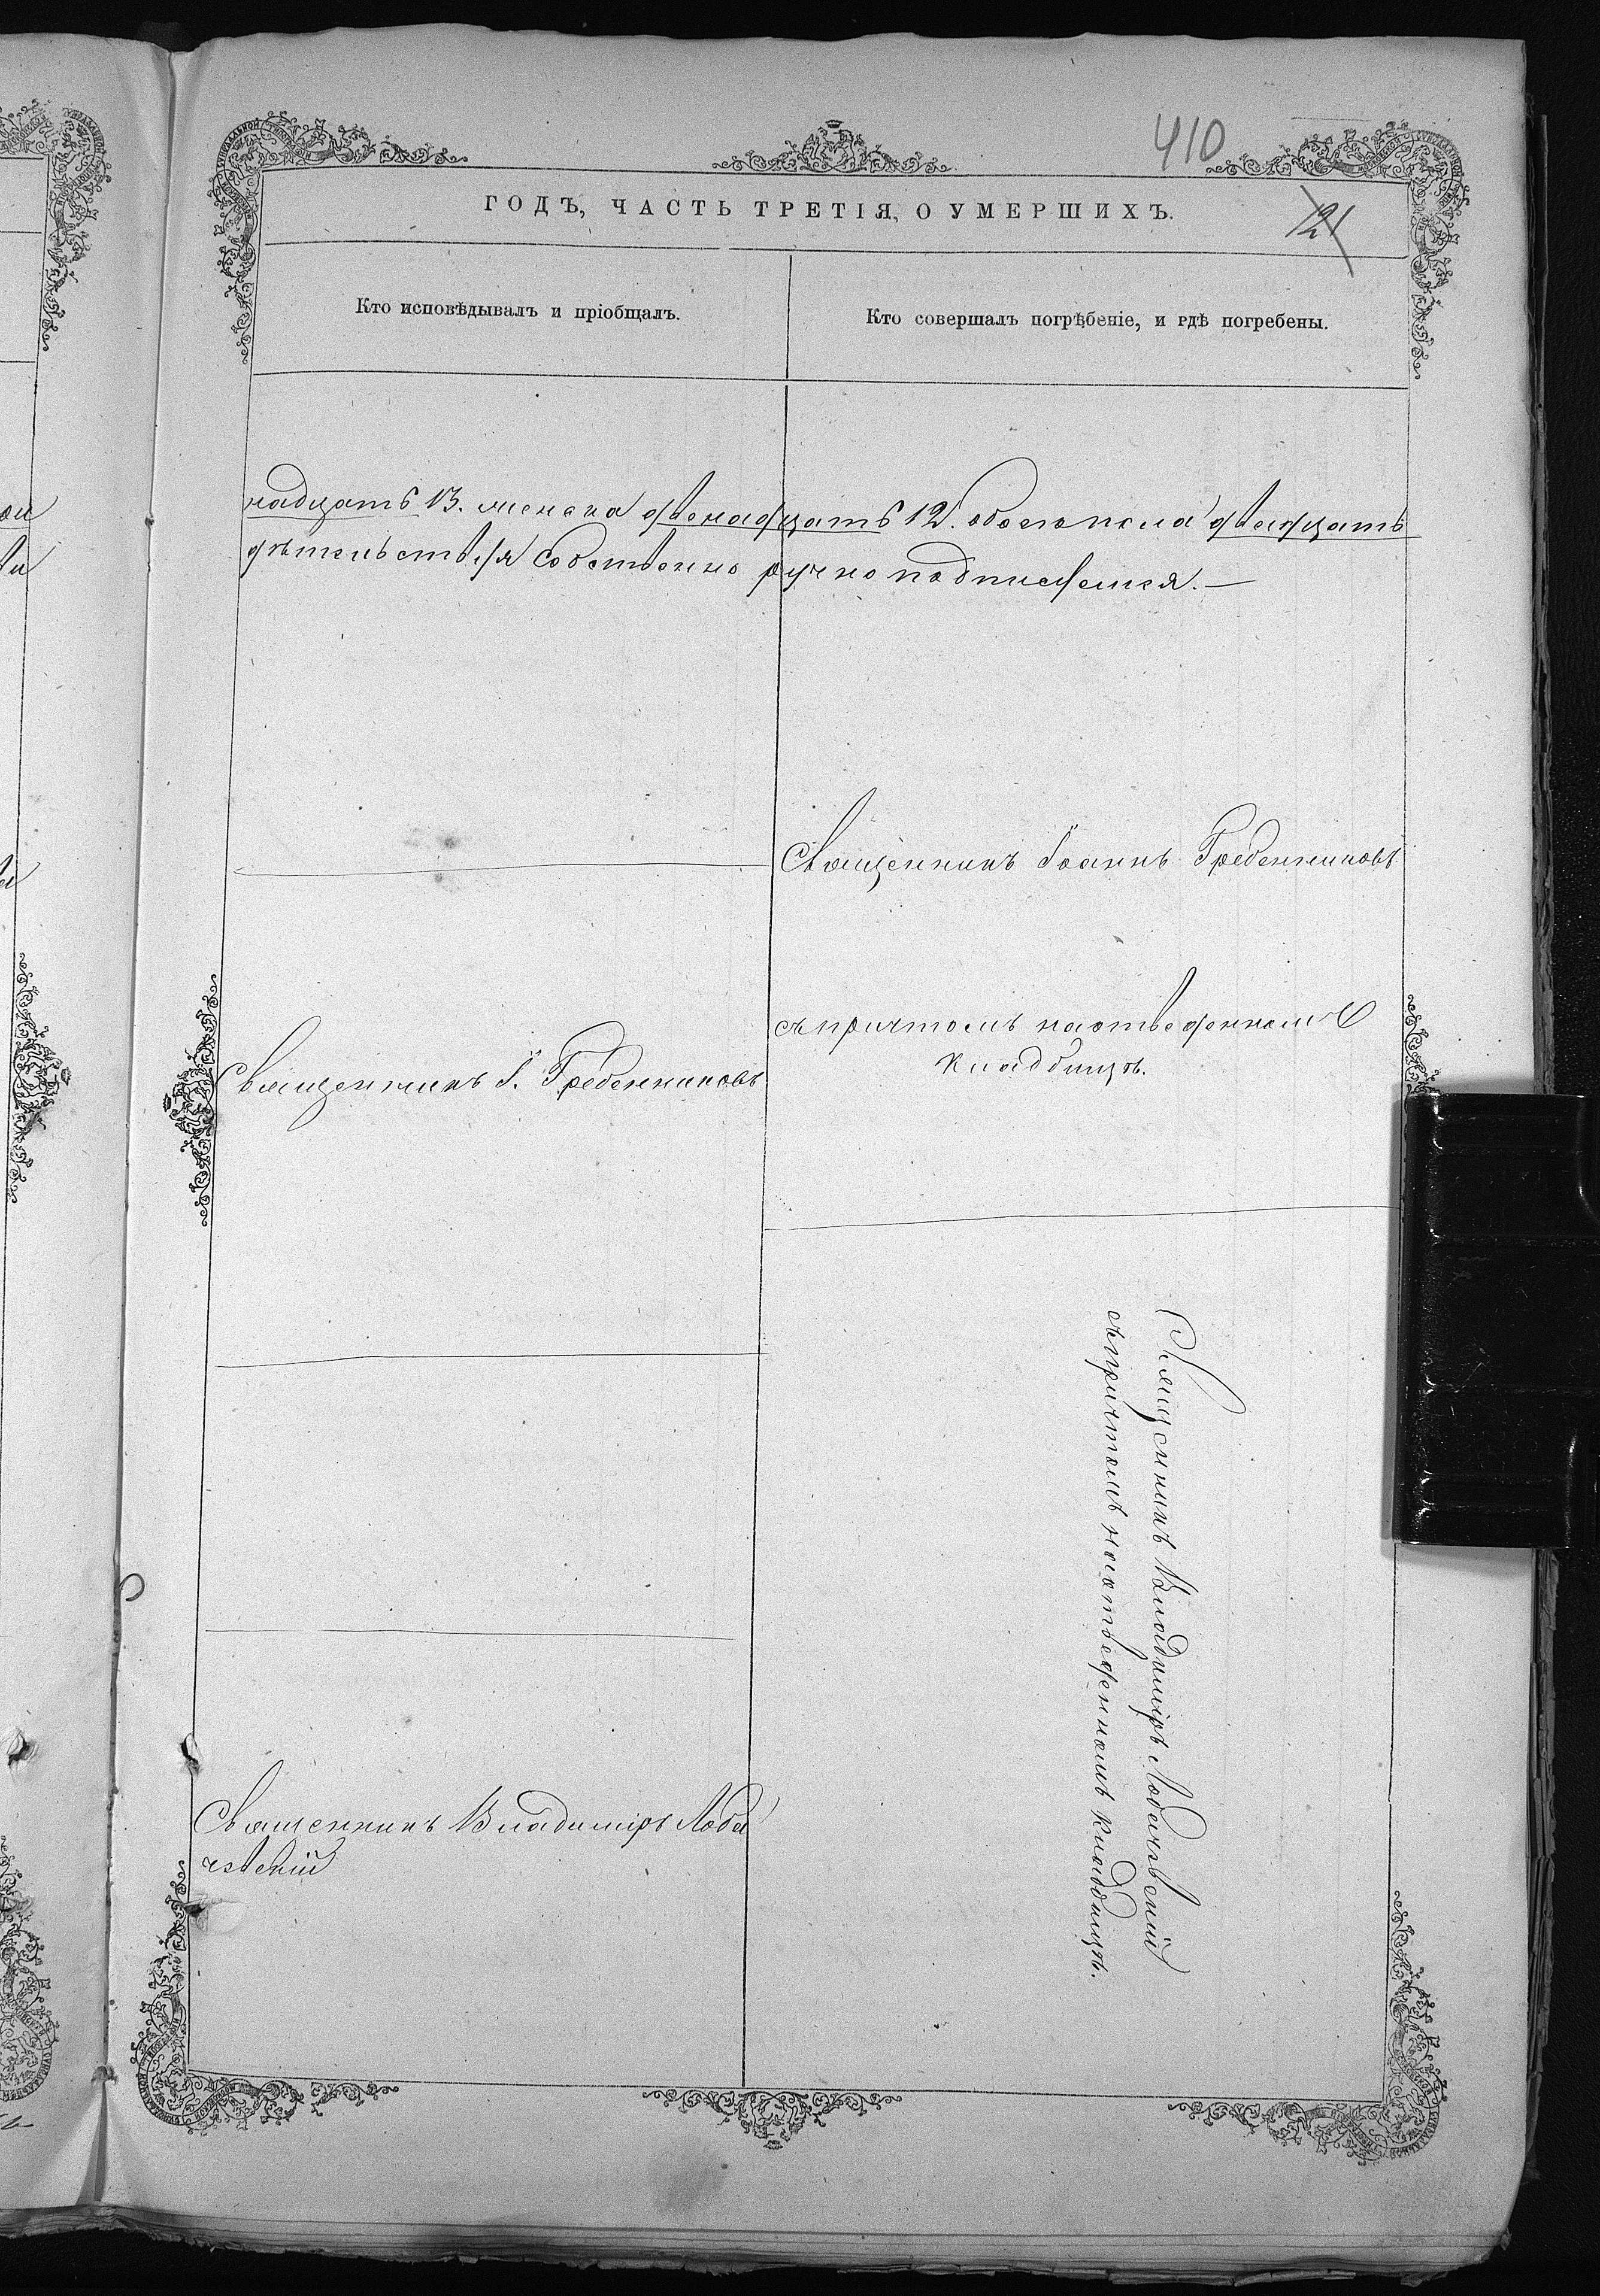 410
ГОДЪ, ЧАСТЬ ТРЕТІЯ, О УМЕРШИХЪ.
121
Кто исповѣдывалъ и пріобщалъ.
Кто совершалъ погрѣбеніе, и гдѣ погребены.
надцать 13. женска двенадцать 12. обоего пола двадцать
дѣтельствуя собственно ручно подписуемся. —
Священникъ Іоаннъ Гребенниковъ
съ причтомъ на отведенномъ
кладбищѣ.
Священникъ І. Гребенниковъ
Священникъ Владиміръ Лобачевскій
съ причтомъ на отведенномъ кладбищѣ.
Священникъ Владиміръ Лоба
чевскій